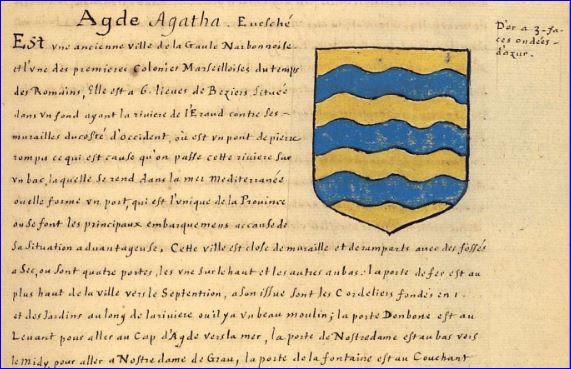 Agde Agatha. Euesché
D'or a 3. fa-
ces ondées
d'azur.
Est vne ancienne ville de la Gaule Narbonnoise
et l'vne des premieres Colonies Marseilloises du temps
des Romains, Elle est a 6. lieues de Beziers située
dans vn fond ayant la riviere de l'Eraud contre ses
murailles du costé d'Occident, où est vn pont de pierre
rompu ce qui est cause qu'on passe cette riviere sur
vn bac, laquelle se rend dans la mer Mediterranée
ou elle forme vn port, qui est l'vnique de la Province
ou se font les principaux embarquemens a cause de
sa situation advantageuse. Cette ville est close de muraille et de ramparts avec des fossés
a Sec, ou sont quatre portes, les vne sur le haut et les autres au bas. la porte de fer est au
plus haut de la ville vers le Septentrion, a son issue sont les Cordeliers fondés en 1.
et des Jardins au long de la riviere ou il y a vn beau moulin; la porte Denbone est au
Levant pour aller au Cap d'Agde vers la mer, la porte de Nostredame est au bas vers
le midy, pour aller a Nostredame de Grau, la porte de la fontaine est au Couchant